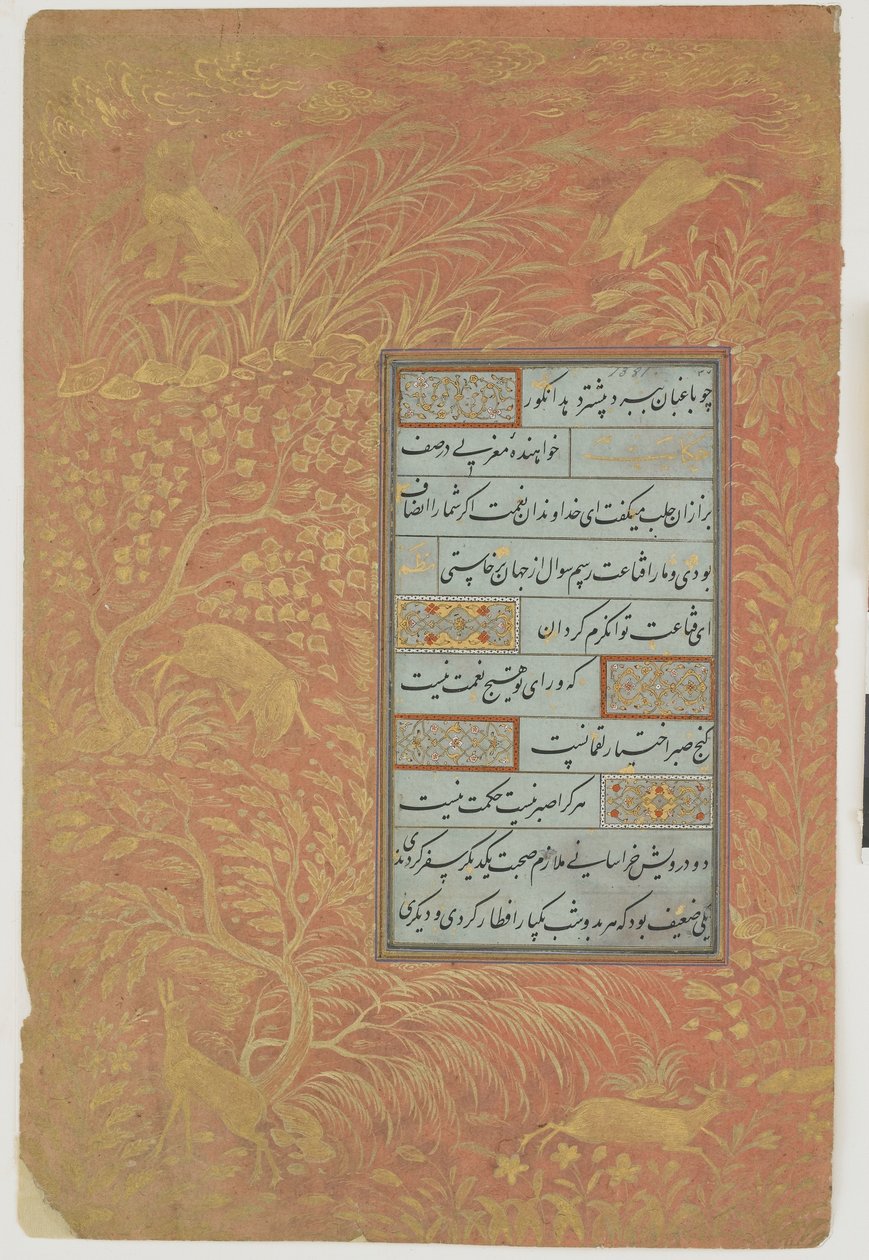 چو باغبان ببرد بیشتر دهد انگور
حکایت خواهندهٔ مغربی در صف
بزازان حلب میگفت ای خداوندان نعمت اگر شما را انصاف
بودی و ما را قناعت رسم سوال از جهان برخاستی نظم
ای قناعت توانگرم گردان
که ورای تو هیچ نعمت نیست
کنج صبر اختیار لقمانست
هر کرا صبر نیست حکمت نیست
دو درویش خراسانی ملازم صحبت یکدیگر سفر کردندی
یکی ضعیف بود که هر بدو شب یکبار افطار کردی و دیگری